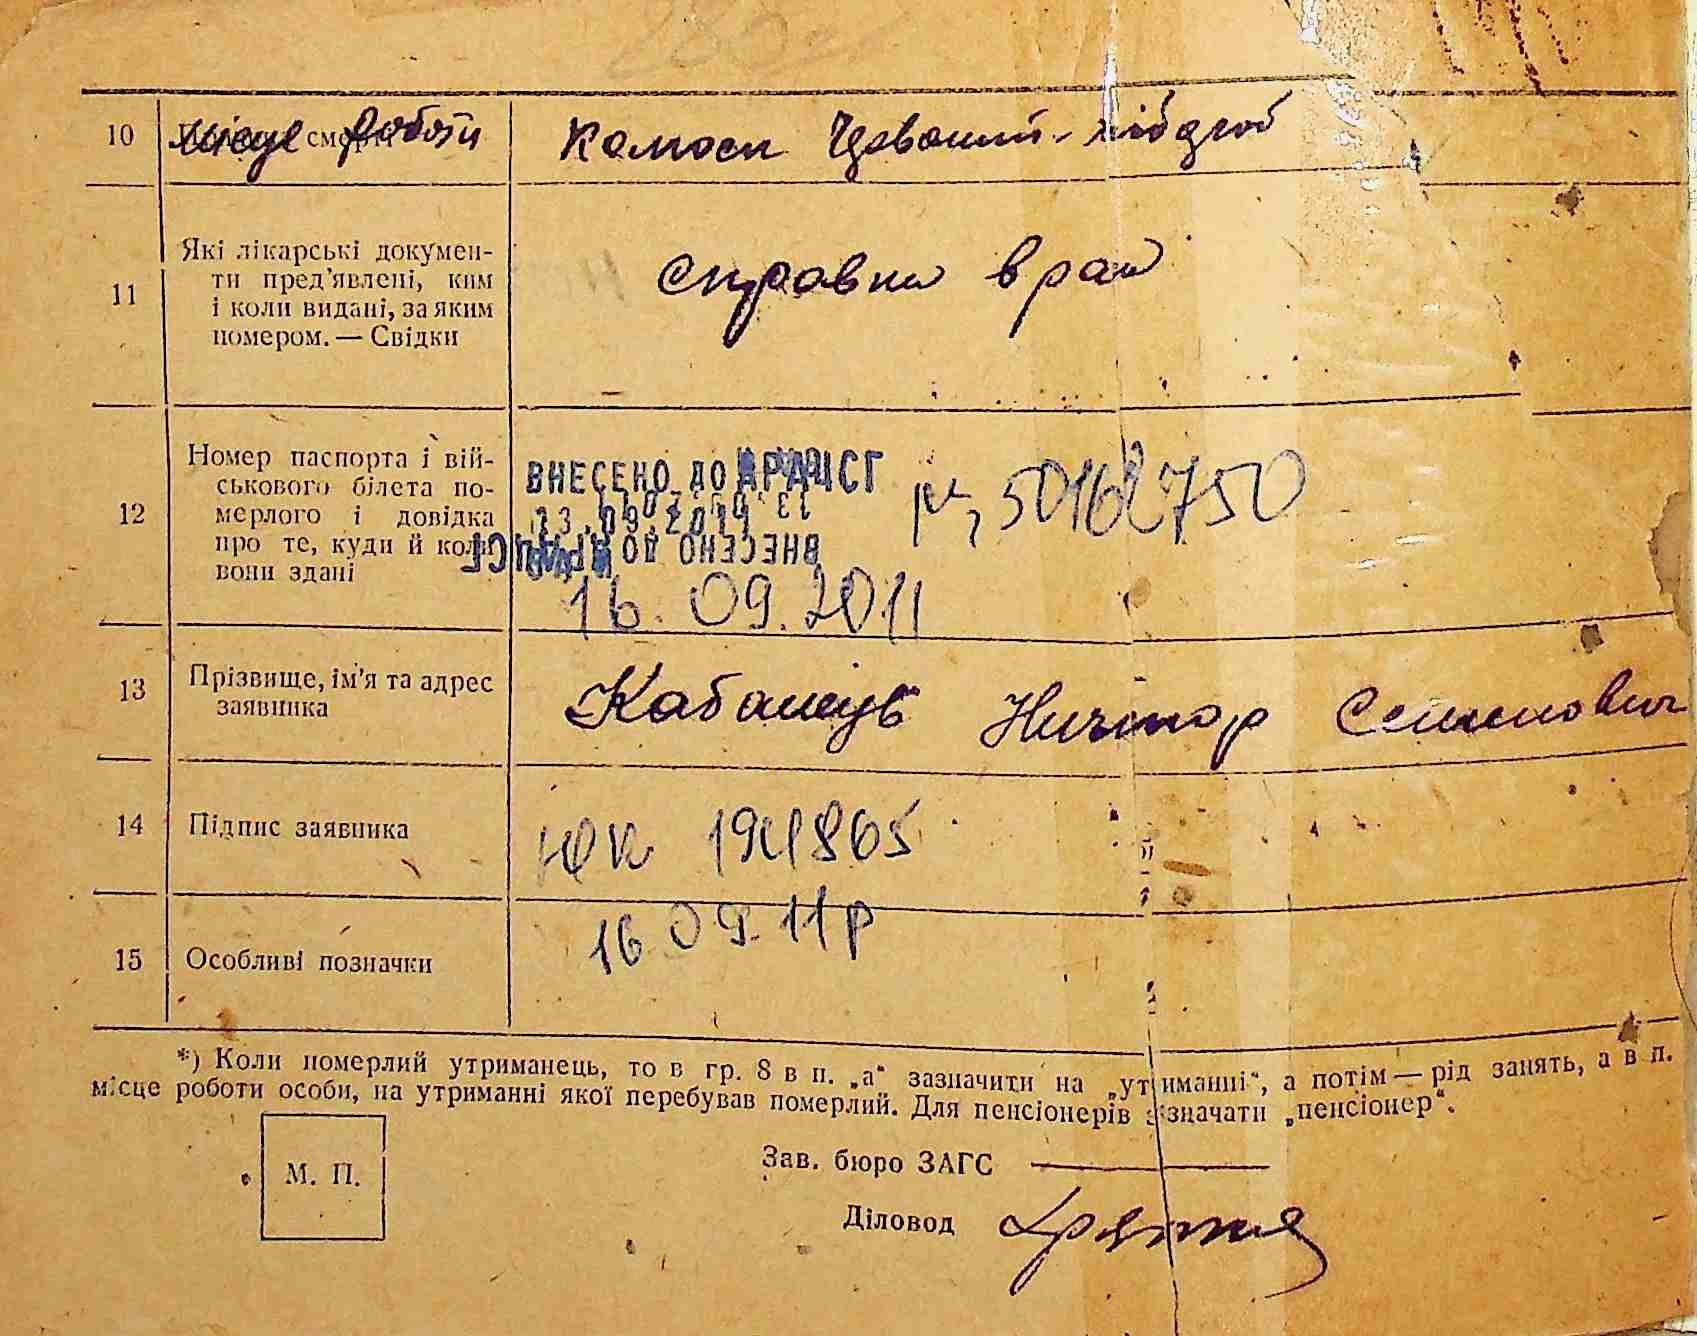 10 місце роботи Колгосп Червоний хлібороб
11 Які лікарські докумен-
ти пред'явлені, ким
і коли видані, за яким
номером. — Свідки
справки врач
12 Номер паспорта і вій-
ськового білета по-
мерлого і довідка
про те, куди й коли
вони здані
ВНЕСЕНО ДО ДРАЦСГ
23.09.2011
ВНЕСЕНО ДО
50162750
16.09.2011
13 Прізвище, ім'я та адрес
заявника
Никанор Семенович
14 Підпис заявника
15 Особливі позначки
16 09. 11р
*) Коли померлий утриманець, то в гр. 8 в п. „а" зазначити на „утриманні", а потім — рід занять, а в п.
місце роботи особи, на утриманні якої перебував померлий. Для пенсіонерів зазначати „пенсіонер".
М. П.
Зав. бюро ЗАГС
Діловод